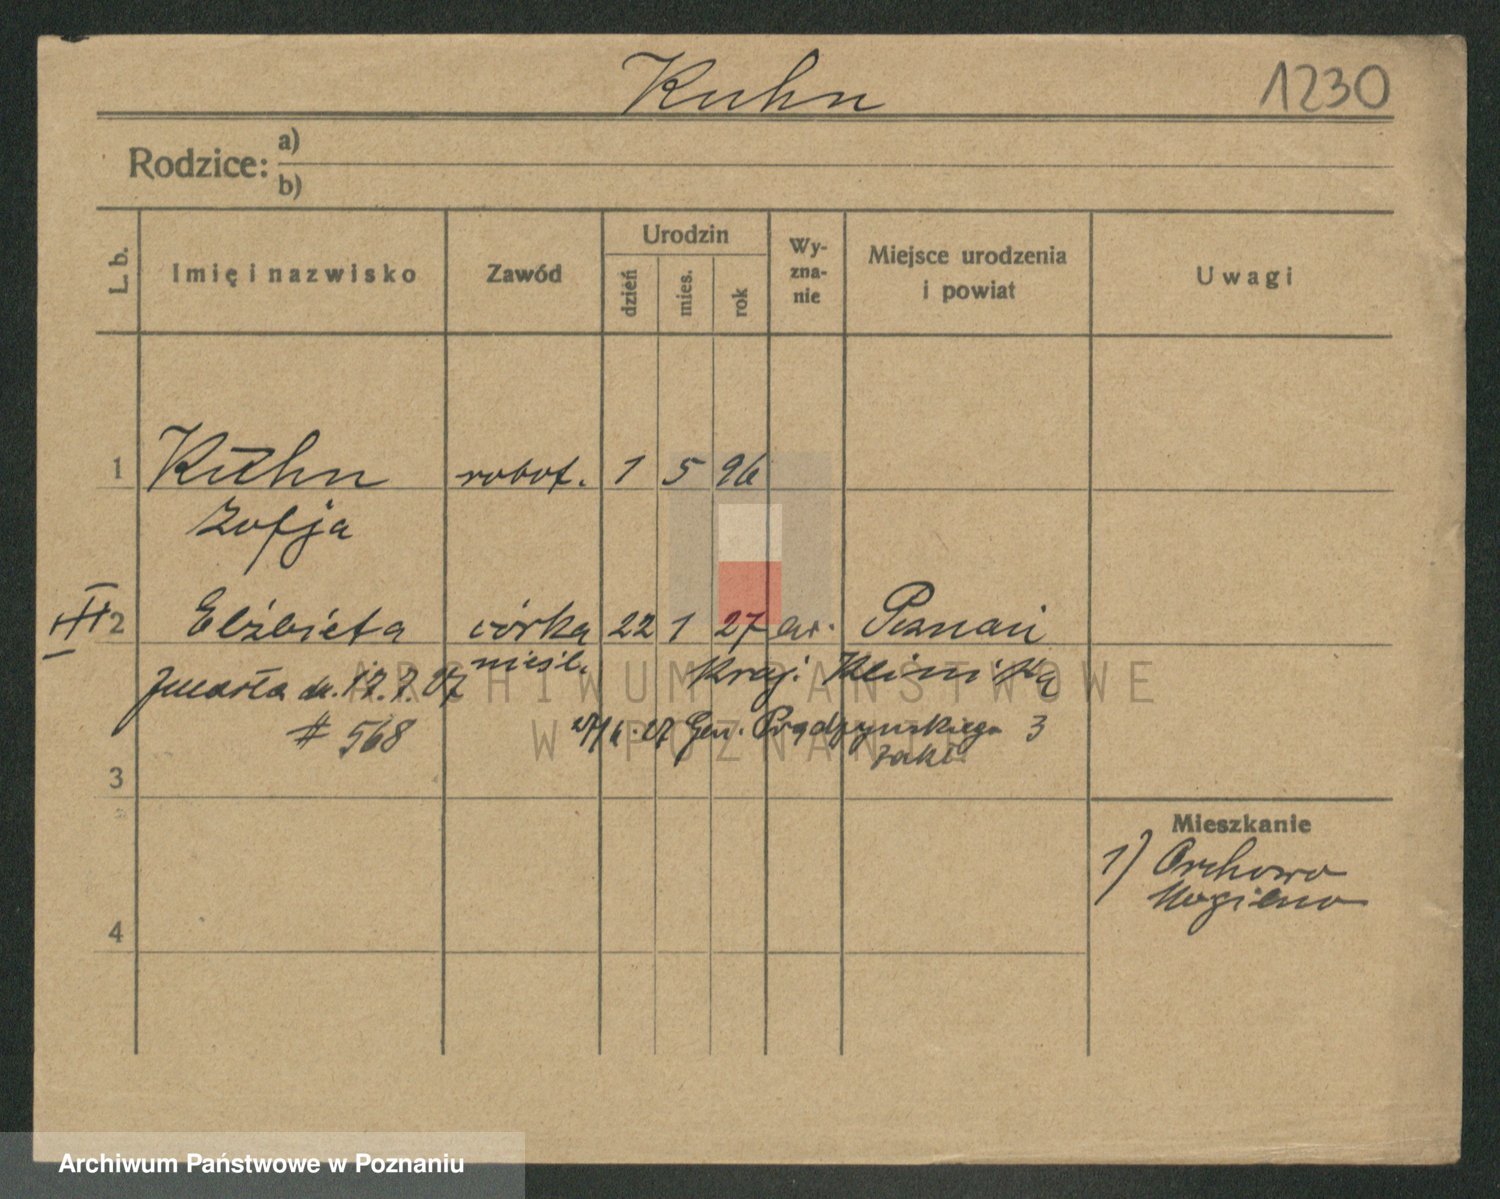 Kuhn
1230
Rodzice: a)
b)
L. b.
Imię i nazwisko
Zawód
Urodzin
dzień
mies.
rok
Wy-
zna-
nie
Miejsce urodzenia
i powiat
Uwagi
1 Kuhn robot. 1 5 96
Zofja
III 2 Elżbieta córka 22 1 27 Poznań
nieśl. Kraj. Klinika
Zmarła dn. 17.7.27
# 568
27/6.27 Gen. Prądzyńskiego 3
zakł.
3
Mieszkanie
1) Orchowo
Mogilno
4
ARCHIWUM PAŃSTWOWE
W POZNANIU
Archiwum Państwowe w Poznaniu